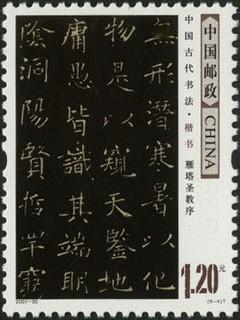 中国邮政 CHINA
中国古代书法·楷书 雁塔圣教序
無形潛寒暑以化
物是以窺天鑒地
庸愚皆識其端明
陰洞陽賢哲罕窮
1.20元
2007-30
(6-4)T